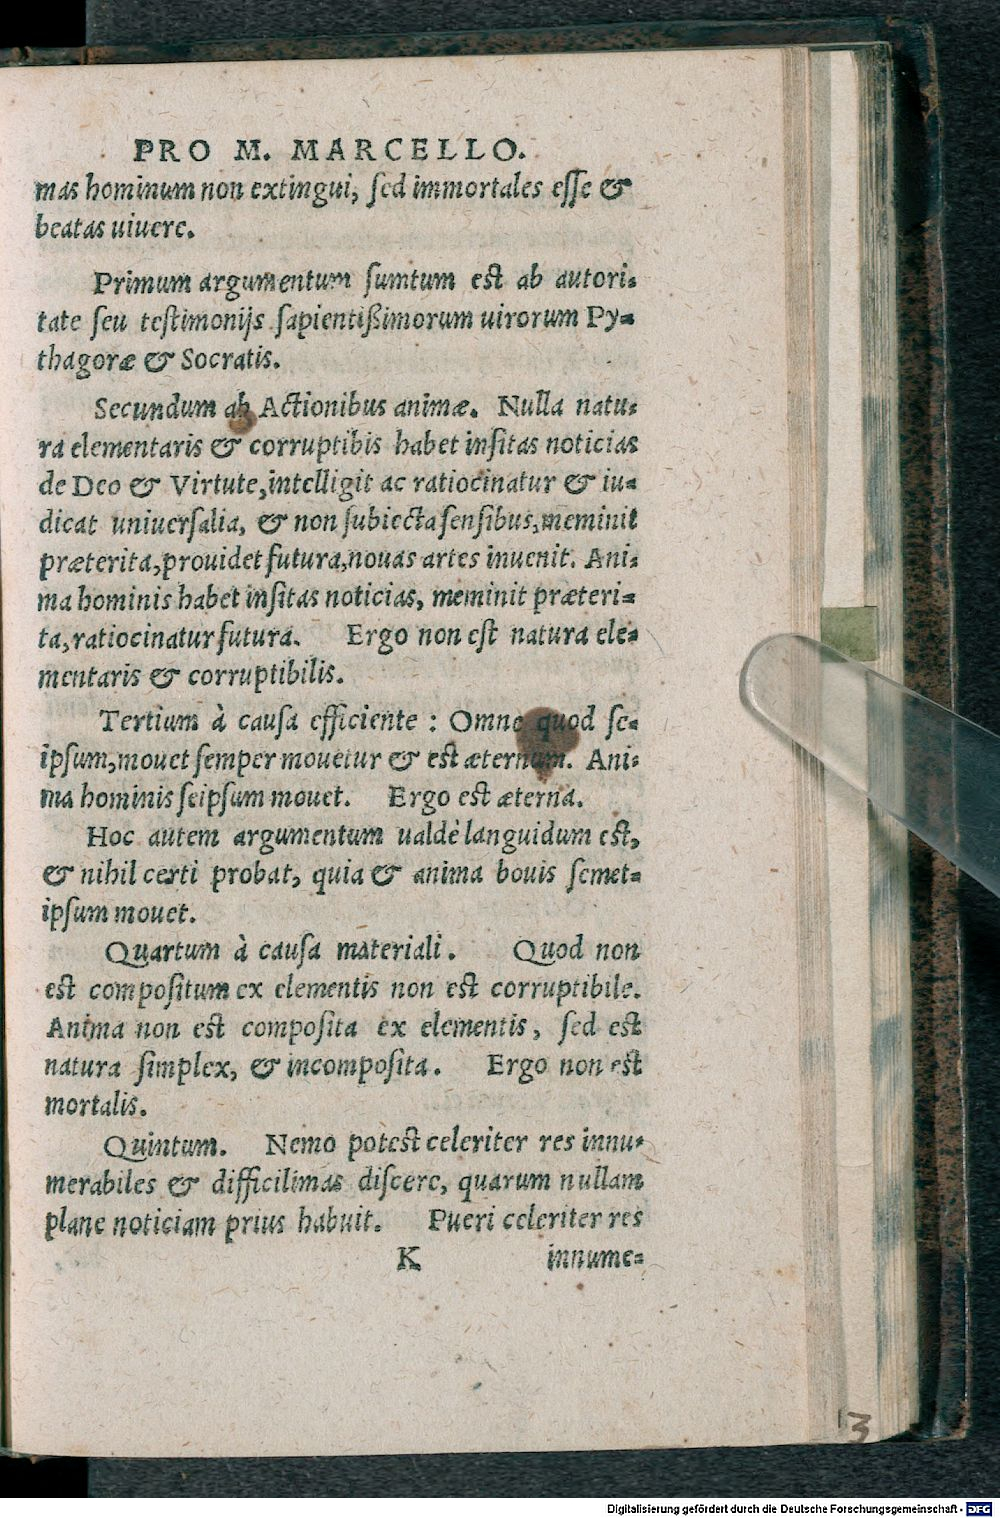 PRO M. MARCELLO.
mas hominum non extingui, ſed immortales eſſe &
beatas uiuere.
Primum argumentum ſumtum eſt ab autori-
tate ſeu teſtimonijs ſapientißimorum uirorum Py-
thagoræ & Socratis.
Secundum ab Actionibus animæ. Nulla natu-
ra elementaris & corruptibis habet inſitas noticias
de Deo & Virtute, intelligit ac ratiocinatur & iu-
dicat uniuerſalia, & non ſubiecta ſenſibus, meminit
præterita, prouidet futura, nouas artes inuenit. Ani-
ma hominis habet inſitas noticias, meminit præteri-
ta, ratiocinatur futura. Ergo non eſt natura ele-
mentaris & corruptibilis.
Tertium à cauſa efficiente : Omne quod ſe-
ipſum, mouet ſemper mouetur & eſt æternum. Ani-
ma hominis ſeipſum mouet. Ergo eſt æterna.
Hoc autem argumentum ualdè languidum eſt,
& nihil certi probat, quia & anima bouis ſemet-
ipſum mouet.
Quartum à cauſa materiali. Quod non
eſt compoſitum ex elementis non eſt corruptibile.
Anima non eſt compoſita ex elementis, ſed eſt
natura ſimplex, & incompoſita. Ergo non eſt
mortalis.
Quintum. Nemo poteſt celeriter res innu-
merabiles & difficilimas diſcere, quarum nullam
plane noticiam prius habuit. Pueri celeriter res
K innume-
13
Digitalisierung gefördert durch die Deutsche Forschungsgemeinschaft - DFG